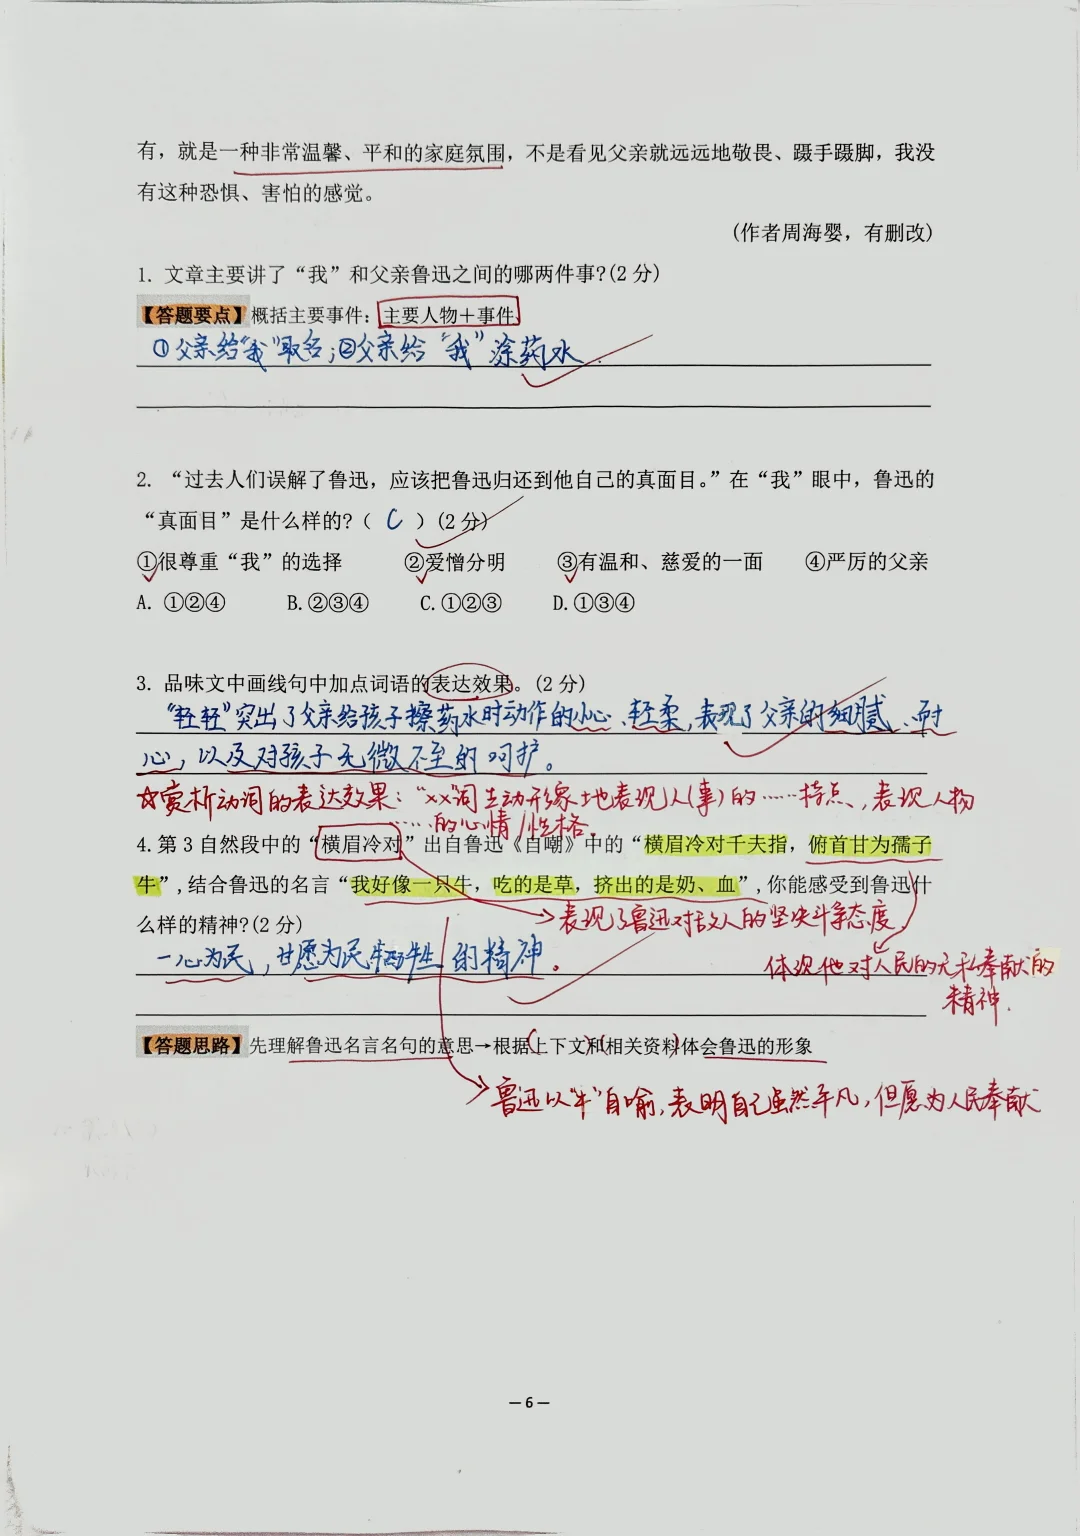 有，就是一种非常温馨、平和的家庭氛围，不是看见父亲就远远地敬畏、蹑手蹑脚，我没
有这种恐惧、害怕的感觉。
(作者周海婴，有删改)
1. 文章主要讲了“我”和父亲鲁迅之间的哪两件事?(2分)
【答题要点】概括主要事件：主要人物+事件
①父亲给“我”取名；②父亲给“我”涂药水.
2. “过去人们误解了鲁迅，应该把鲁迅归还到他自己的真面目。”在“我”眼中，鲁迅的
“真面目”是什么样的?（ C ）(2分)
①很尊重“我”的选择 ②爱憎分明 ③有温和、慈爱的一面 ④严厉的父亲
A. ①②④ B.②③④ C.①②③ D.①③④
3. 品味文中画线句中加点词语的表达效果。(2分)
“轻轻”突出了父亲给孩子擦药水时动作的小心、轻柔，表现了父亲的细腻、耐
心，以及对孩子无微不至的呵护。
☆赏析动词的表达效果：“xx”词生动形象地表现人(事)的……特点、，表现人物
……的心情/性格。
4.第3自然段中的“横眉冷对”出自鲁迅《自嘲》中的“横眉冷对千夫指，俯首甘为孺子
牛”,结合鲁迅的名言“我好像一只牛，吃的是草，挤出的是奶、血”,你能感受到鲁迅什
么样的精神?(2分)
表现了鲁迅对敌人的坚决斗争态度
一心为民，甘愿为民牺牲的精神。
体现他对人民的无私奉献的
精神.
【答题思路】先理解鲁迅名言名句的意思→根据(上下文)和(相关资料)体会鲁迅的形象
鲁迅以“牛”自喻，表明自己虽然平凡，但愿为人民奉献
—6—